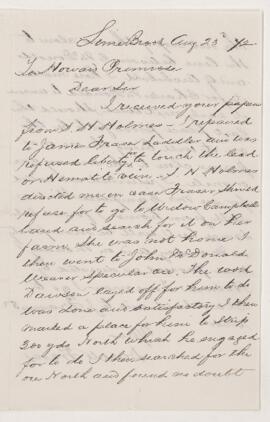 Lime Brook Aug 23d /72
To Howard Primrose
Dear Sir
I received your papers
from J H Holmes - I repaired
to James Fraser Saddler and was
refused liberty to touch the lead
or Hematite vein - J H Holmes
directed me in case Fraser should
refuse for to go to Widow Campbells
land and search for it on her
farm She was not home I
then went to John McDonald
Weaver Specular ore. The work
Dawson layed off for him to do
was done and satisfactory I then
marked a place for him to strip
200 yds North which he engaged
for to do I then searched for the
ore North and found no doubt